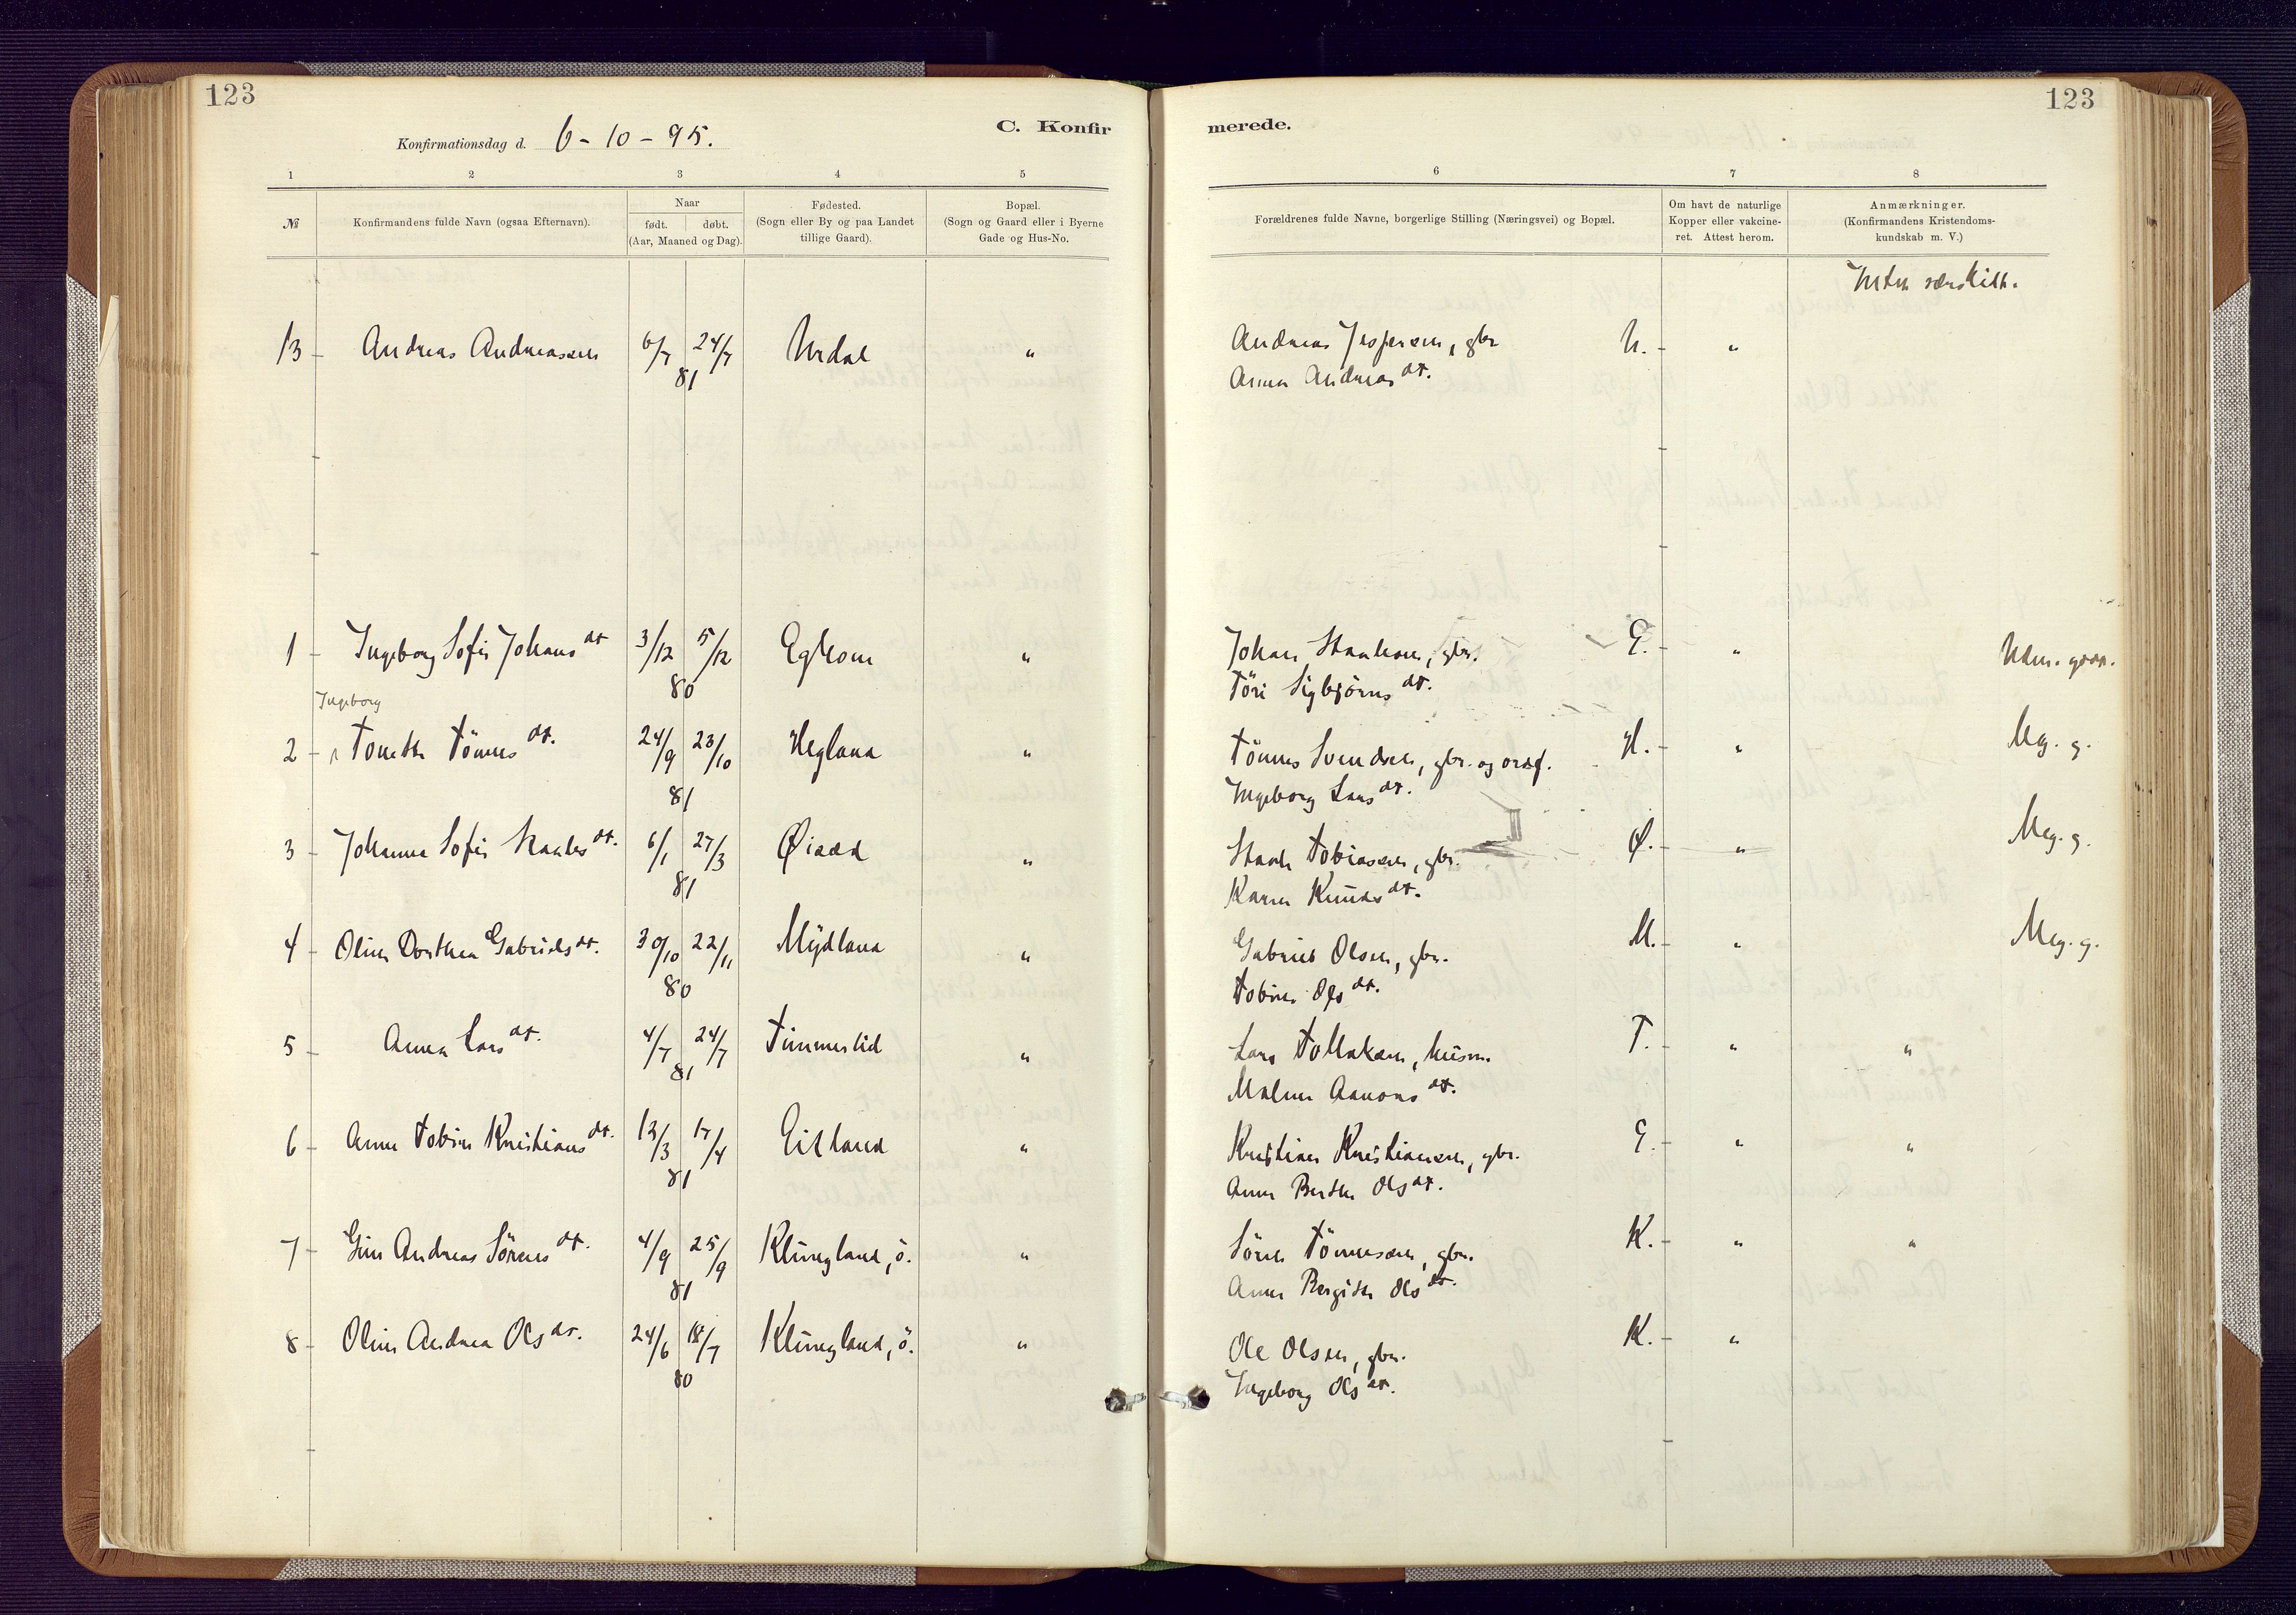 123
123
Konfirmationsdag d. 6 - 10 - 95.
C. Konfir
merede.
1 2 3 4 5
6 7 8
№ Konfirmandens fulde Navn (ogsaa Efternavn). Naar født. døbt. (Aar, Maaned og Dag). Fødested. (Sogn eller By og paa Landet tillige Gaard). Bopæl. (Sogn og Gaard eller i Byerne Gade og Hus-No.
Forældrenes fulde Navne, borgerlige Stilling (Næringsvei) og Bopæl. Om havt de naturlige Kopper eller vakcineret. Attest herom. Anmærkninger. (Konfirmandens Kristendomskundskab m. V.)
13 - Andreas Andreassen 6/7 24/7 81 Urdal "
Andreas Jespersen, gbr U. - "
Anna Andreas dt.
1 - Ingeborg Sofie Johans dt 3/12 5/12 80 "
gbr. E. - "
Töri Sigbjörns dt.
Ingeborg
2 - Tonette Tönnes dt. 24/9 23/10 81 Hegland "
Tönnes Svendsen, gbr. og ordf. H. - " Meg. g.
Ingeborg Lars dt.
3 - Johanna Sofie dt. 6/1 27/3 81 "
Tobiassen, gbr. Ø. - " Meg. g.
Karen Knuds dt.
4 - Oline Dorthea Gabriels dt. 30/10 22/11 80 Mydland "
Gabriel Olsen, gbr. M. - " Meg. g.
Tobine Ols dt.
5 - Anna Lars dt. 4/7 24/7 81 Timmerlid "
Lars Tollaksen, husm. T. - " "
Malene Aanons dt.
6 - Anne Tobine Kristians dt. 13/3 17/4 81 Eitland "
Kristian Kristiansen, gbr. E. - " "
Anne Berthe Ols dt.
7 - Gine Andreas Sörens dt. 4/9 25/9 81 Klungland, ö. "
Sören Tönnesen, gbr. K. - " "
Anne Bergitte Ols dt.
8 - Oline Andrea Ols dt. 24/6 18/7 80 Klungland, ö. "
Ole Olsen, gbr. K. - "
Ingeborg Ols dt.